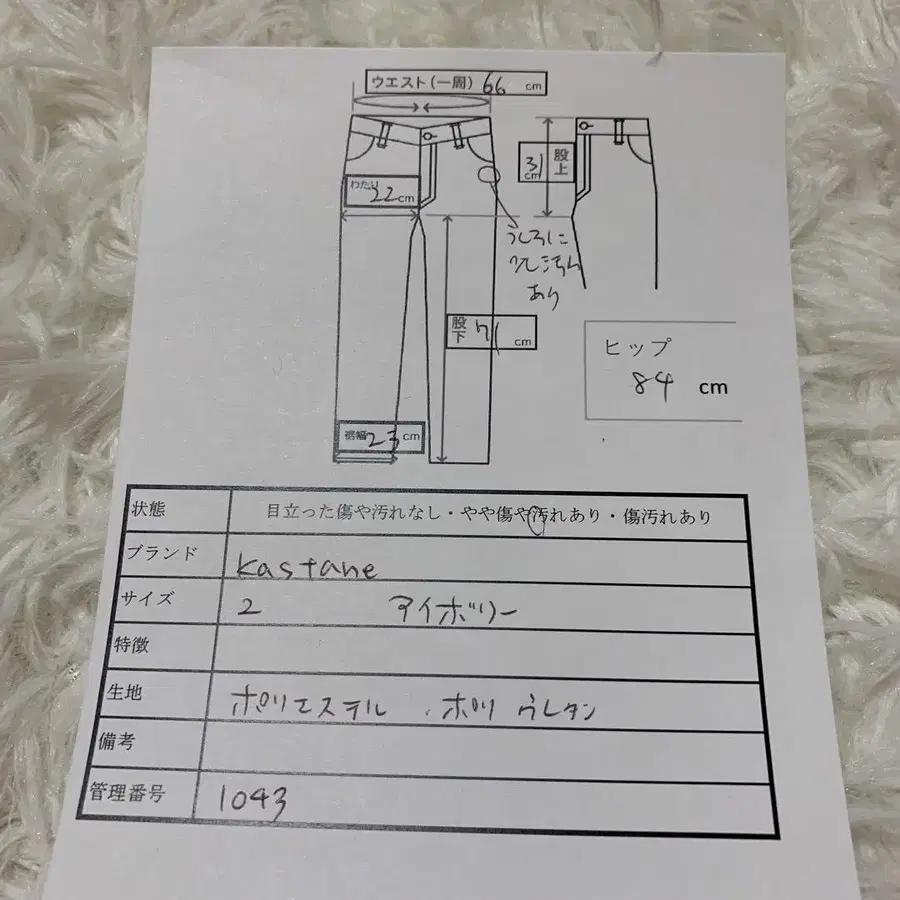 ウエスト(一周) 66 cm
股上 31 cm
わたり 22 cm
うしろに
少し汚れ
あり
股下 71 cm
ヒップ
84 cm
裾幅 23 cm
状態 目立った傷や汚れなし・やや傷や汚れあり・傷汚れあり
ブランド kastane
サイズ 2 アイボリー
特徴
生地 ポリエステル、ポリウレタン
備考
管理番号 1043